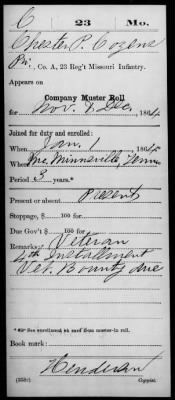 C 23 Mo.
Chester P. Cozens
Pri., Co. A, 23 Reg't Missouri Infantry.
Appears on
Company Muster Roll
for Nov. & Dec., 1864
Joined for duty and enrolled:
When Jan. 1, 1864
Where Mc Minnville, Tenn
Period 3 years.*
Present or absent Present
Stoppage, $ 100 for
Due Gov't $ 100 for
Remarks: Veteran
4th Installment
Vet. Bounty due
*See enrollment on card from muster-in roll.
Book mark:
Henderson
(358c) Copyist.